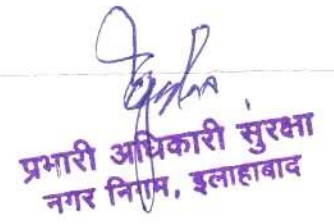 प्रभारी अधिकारी सुरक्षा
नगर निगम, इलाहाबाद